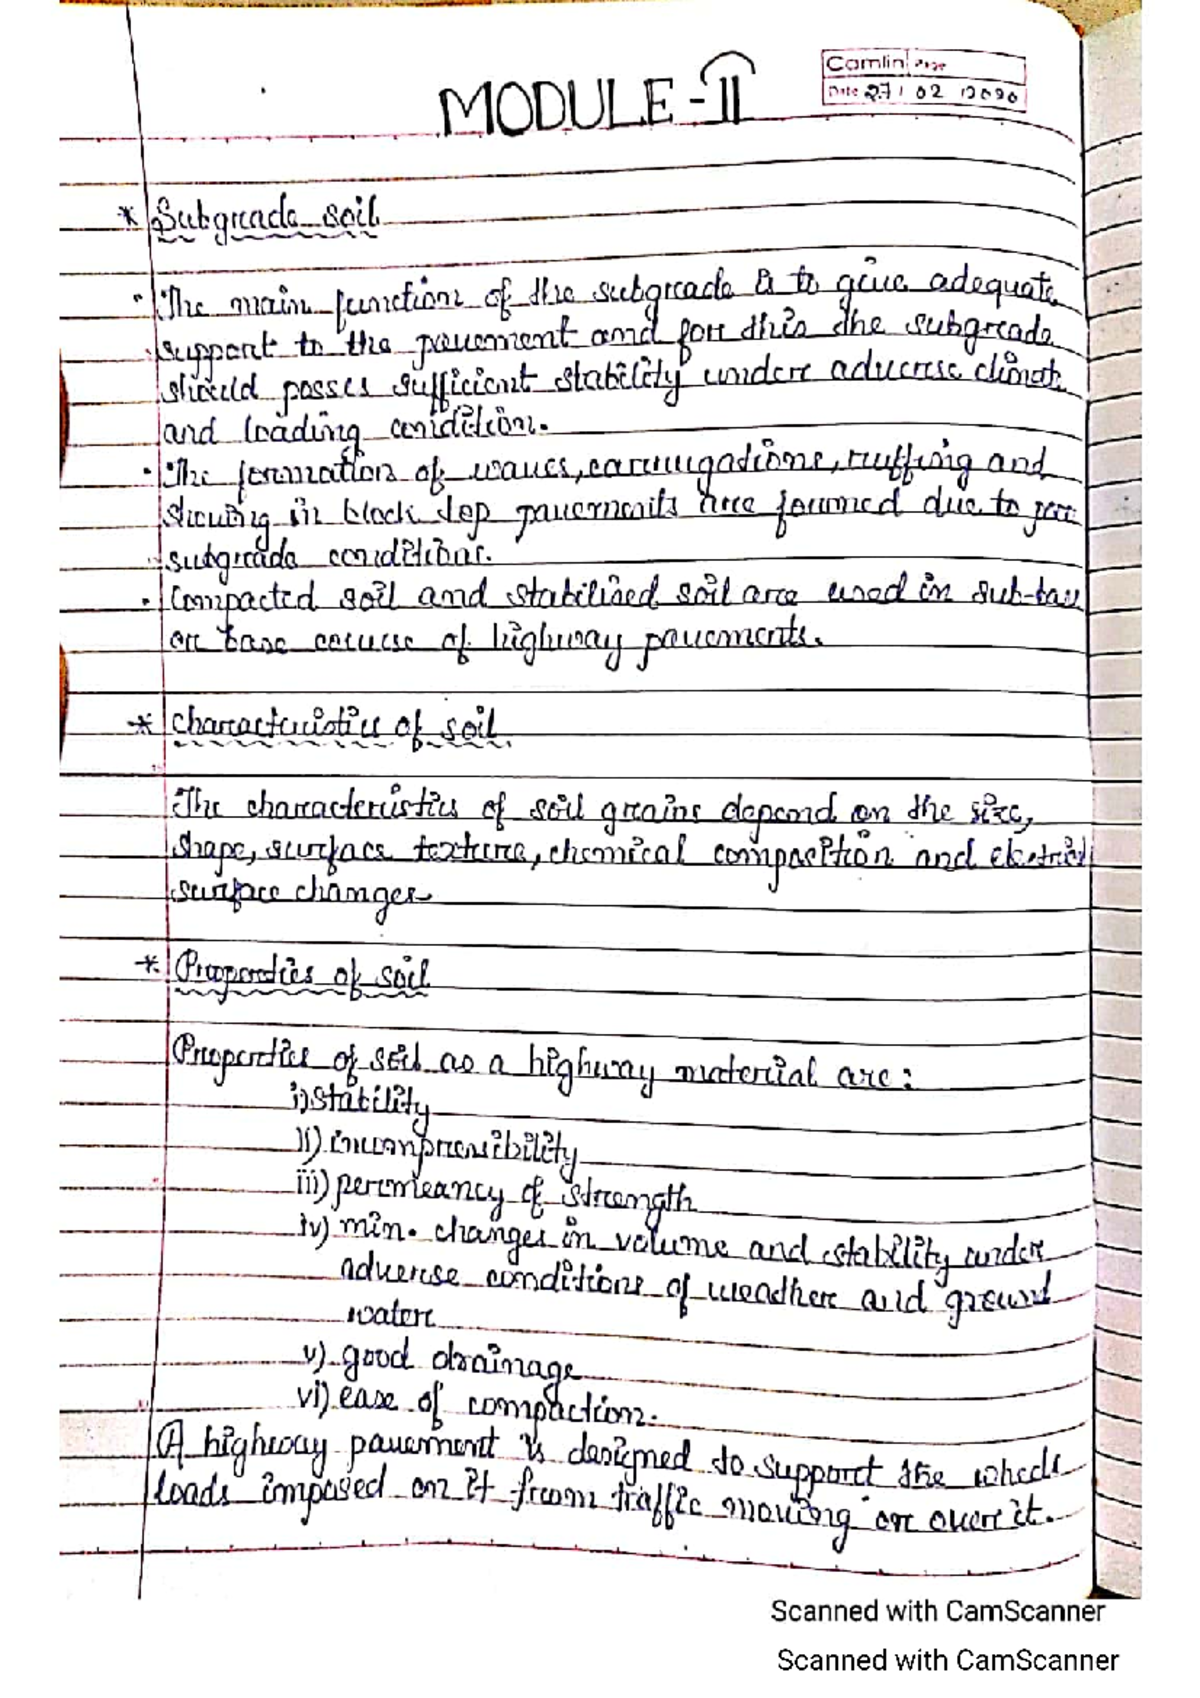 MODULE-II
Camlin Page
Date 27 / 02 / 2020
* Subgrade soil
• The main function of the subgrade is to give adequate
support to the pavement and for this the subgrade
should posses sufficient stability under adverse climate
and loading condition.
• The formation of waves, corrugations, rutting and
shoving in black top pavements are formed due to poor
subgrade conditions.
• Compacted soil and stabilised soil are used in sub-base
or base course of highway pavements.
* Characteristics of soil
The characteristics of soil grains depend on the size,
shape, surface texture, chemical composition and electrical
surface changes
* Properties of soil
Properties of soil as a highway material are :
i) stability
ii) incompressibility
iii) permeancy of strength
iv) min. changes in volume and stability under
adverse conditions of weather and ground
water
v) good drainage
vi) ease of compaction.
A highway pavement is designed to support the wheel
loads imposed on it from traffic moving on over it.
Scanned with CamScanner
Scanned with CamScanner